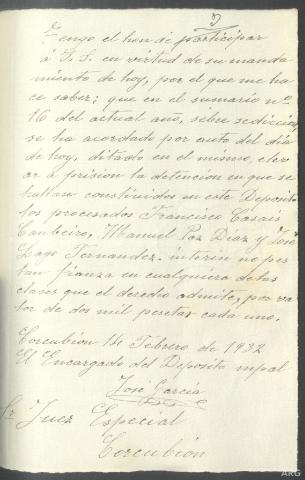 Tengo el honor de participar
á S. S. en virtud de su manda
miento de hoy, por el que me ha
ce saber; que en el sumario nº
16 del actual año, sobre sedición,
se ha acordado por auto del dia
de hoy, dictado en el mismo, elev
ar á prisión la detención en que se
hallan constituidos en este Deposito
los procesados Francisco Casais
Canbeiro, Manuel Paz Diaz y José
Lago Fernandez. interin no pres
tan fianza en cualquiera de las
clases que el derecho admite, por va
lor de dos mil pesetas cada uno.
Corcubión 14 Febrero de 1932
El Encargado del Deposito mpal
José García
Sr Juez Especial
Corcubión
ARG